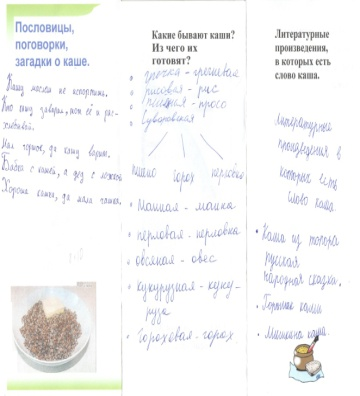 Пословицы,
поговорки,
загадки о каше.
Кашу маслом не испортишь.
Кто кашу заварил, тот её и рас-
хлёбывай.
Нам горшок, да кашу варит.
Бабка с кашей, а дед с ложкой
Хороша кашка, да мала чашка.
Какие бывают каши?
Из чего их
готовят?
гречка - гречневая
рисовая - рис
пшённая - просо
Суворовская
пшено горох перловка
Манная - манка
перловая - перловка
овсяная - овес
кукурузная - куку-
руза
гороховая - горох
Литературные
произведения,
в которых есть
слово каша.
Литературные
произведения в
которых есть
слово каша.
Каша из топора
русская
народная сказка.
Горшок каши
Мишкина каша.